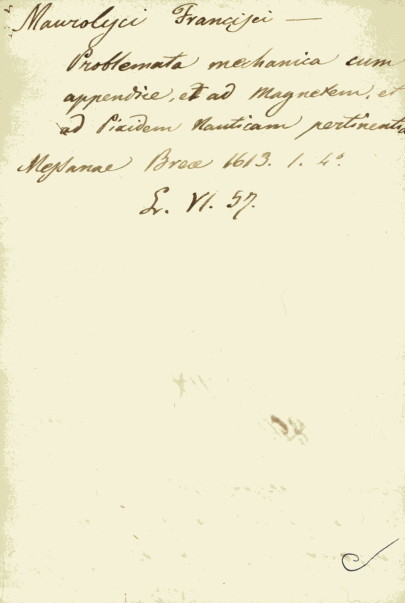 Maurolyci Francisci —
Problemata mechanica cum
appendice, et ad Magnetem, et
ad Pixidem Nauticam pertinentia
Messanae Breae 1613. 1. 4°.
VI. 57.